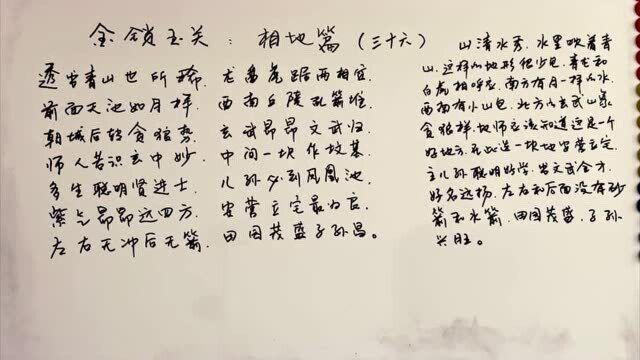 金锁玉关：相地篇（三十六）
透出青山也所稀 龙蟠虎踞两相宜
前面天池如月样 西南丘陵孔箭堆
朝城后转贪狼势 玄武昂昂文武归
师人若识玄中妙 中间一块作坟基
多生聪明贤进士 儿孙必到凤凰池
紫气昂昂达四方 安营立宅最为良
左右无冲后无箭 田园茂盛子孙昌。
山清水秀，水里映着青
山，这样的地形很少见，青龙和
白虎相呼应，南方有月一样的水，
西南有小山包，北方的玄武山象
贪狼样，地师应该知道这是一个
好地方，在此选一块地安营立宅，
主儿孙聪明好学，出文武全才，
好名远扬，左右和后面没有砂
箭和水箭，田园茂盛，子孙
兴旺。